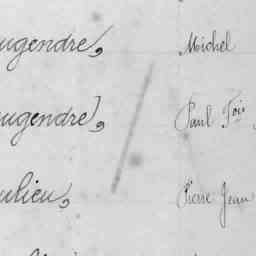 ugendre, Michel
ugendre, Paul Fois
ulieu, Pierre Jean